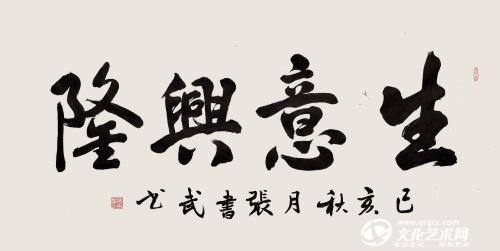 生意興隆
己亥秋月張書武弋
www.orgcc.com
文化艺术网